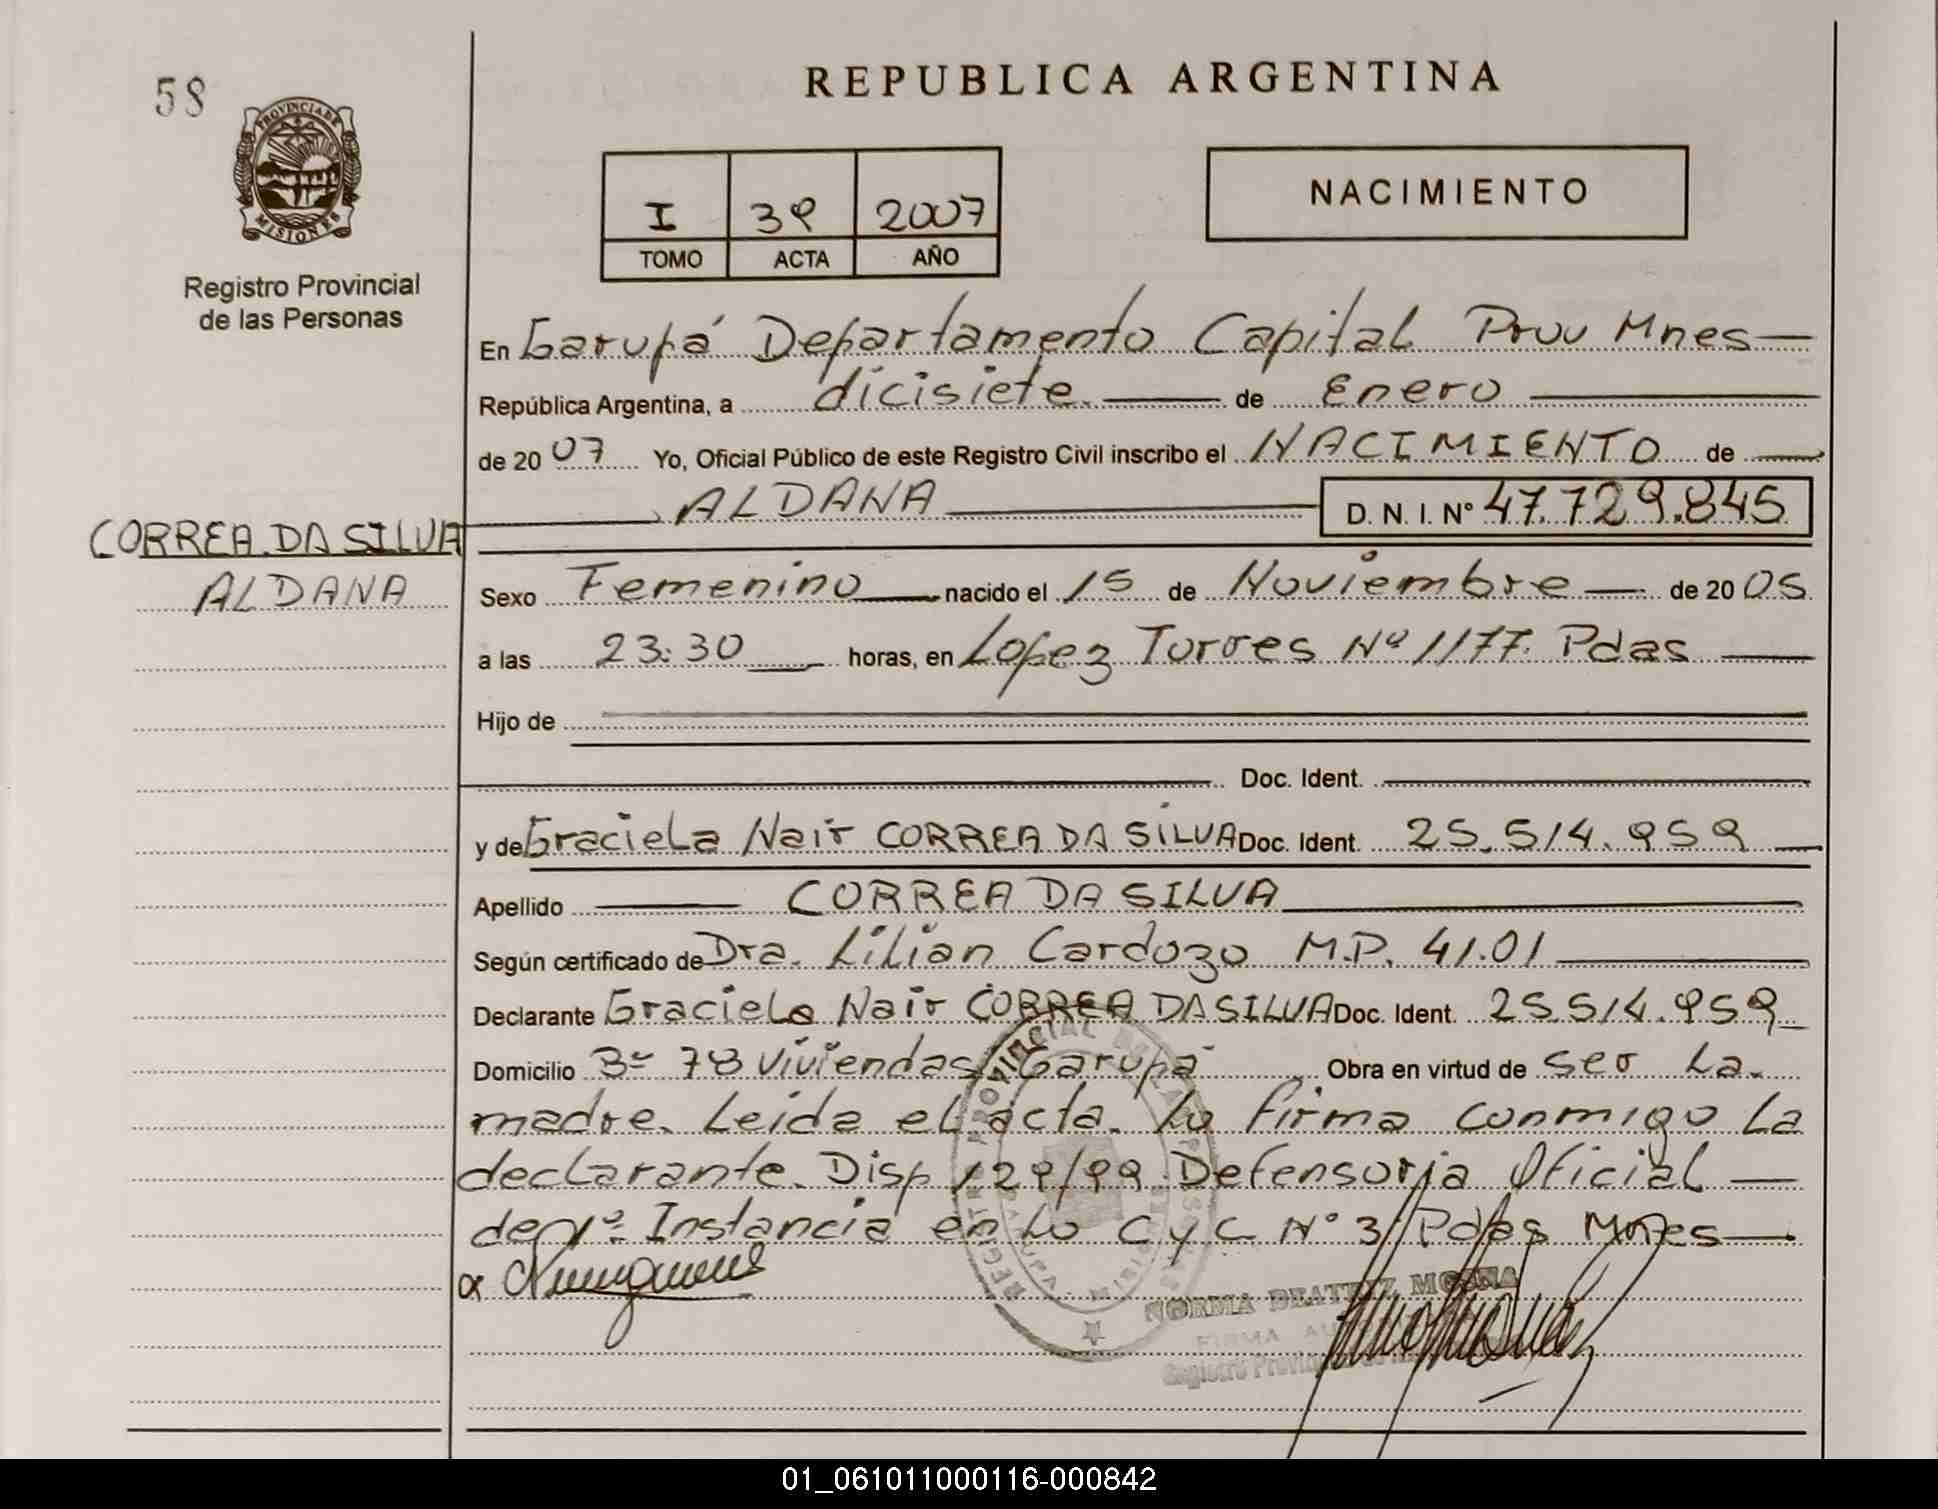 58
REPUBLICA ARGENTINA
PROVINCIA DE
MISIONES
Registro Provincial
de las Personas
I 39 2007
TOMO ACTA AÑO
NACIMIENTO
En Garupá Departamento Capital Prov Mnes
República Argentina, a dicisiete de Enero
de 2007 Yo, Oficial Público de este Registro Civil inscribo el NACIMIENTO de
ALDANA D. N. I. N° 47.729.845
CORREA DA SILVA
ALDANA
Sexo Femenino nacido el 15 de Noviembre de 2005
a las 23:30 horas, en Lopez Torres Nº 1177. Pdas
Hijo de
Doc. Ident.
y de Graciela Nair CORREA DA SILVA Doc. Ident. 25.514.959
Apellido CORREA DA SILVA
Según certificado de Dra. Lilian Cardozo M.P. 41.01
Declarante Graciela Nair CORREA DA SILVA Doc. Ident. 25.514.959
Domicilio Bº 78 viviendas Garupá Obra en virtud de ser la
madre. Leida el acta. La firma conmigo la
declarante. Disp 129/99 Defensoria Oficial
de 1º Instancia en lo C y C Nº 3 Pdas Mnes
NORMA BEATRIZ
FIRMA
Registro
01_061011000116-000842